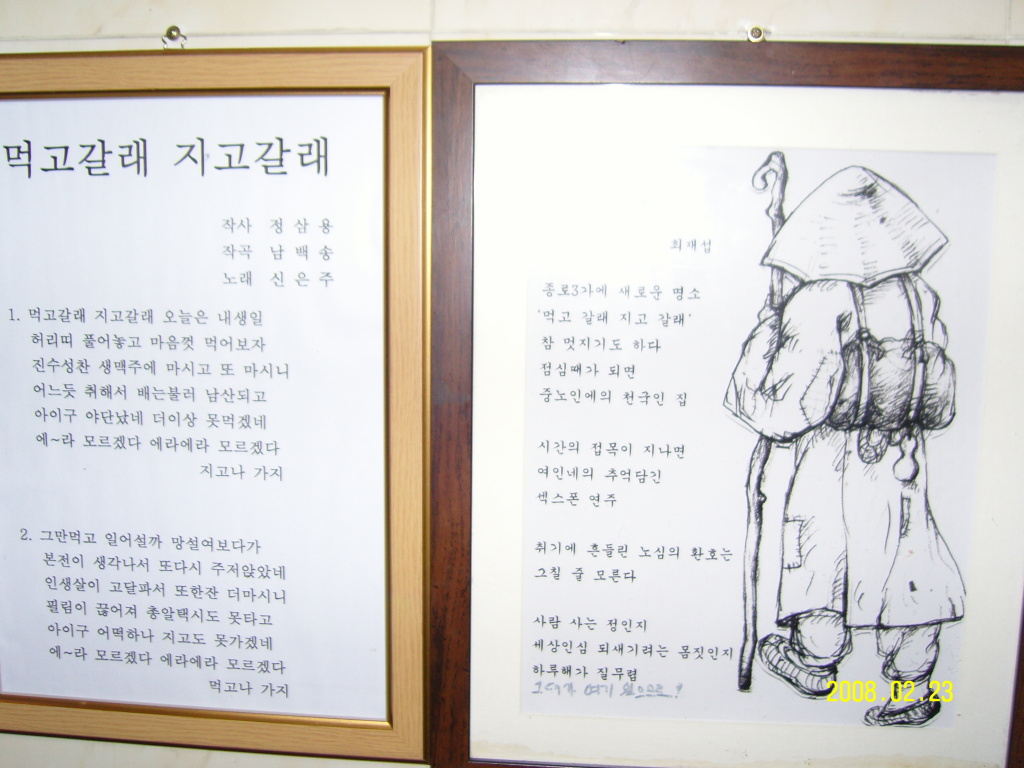 먹고갈래 지고갈래
작사 정 삼 용
작곡 남 백 송
노래 신 은 주
1. 먹고갈래 지고갈래 오늘은 내생일
허리띠 풀어놓고 마음껏 먹어보자
진수성찬 생맥주에 마시고 또 마시니
어느듯 취해서 배는불러 남산되고
아이구 야단났네 더이상 못먹겠네
에~라 모르겠다 에라에라 모르겠다
지고나 가지
2. 그만먹고 일어설까 망설여보다가
본전이 생각나서 또다시 주저앉았네
인생살이 고달파서 또한잔 더마시니
필림이 끊어져 총알택시도 못타고
아이구 어떡하나 지고도 못가겠네
에~라 모르겠다 에라에라 모르겠다
먹고나 가지
최재섭
종로3가에 새로운 명소
'먹고 갈래 지고 갈래'
참 멋지기도 하다
점심때가 되면
중노인에의 천국인 집
시간의 접목이 지나면
여인네의 추억담긴
섹스폰 연주
취기에 흔들린 노심의 환호는
그칠 줄 모른다
사람 사는 정인지
세상인심 되새기려는 몸짓인지
하루해가 질무렵
여기
2008.02.23